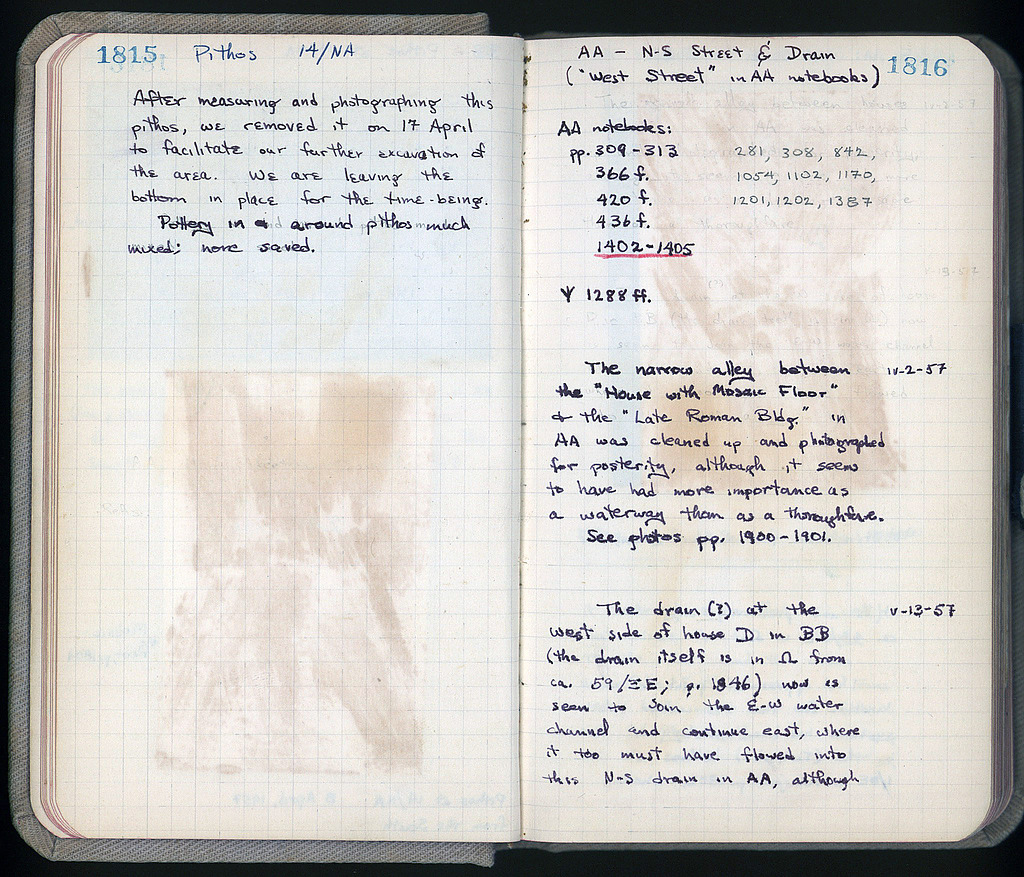 1815 Pithos 14/NA
After measuring and photographing this
pithos, we removed it on 17 April
to facilitate our further excavation of
the area. We are leaving the
bottom in place for the time-being.
Pottery in & around pithos much
mixed; none saved.
AA - N-S Street & Drain
("West Street" in AA notebooks) 1816
AA notebooks:
pp. 309-313 281, 308, 842,
366 f. 1054, 1102, 1170,
420 f. 1201, 1202, 1387
436 f.
1402-1405
Ψ 1288 ff.
The narrow alley between IV-2-57
the "House with Mosaic Floor"
& the "Late Roman Bldg." in
AA was cleaned up and photographed
for posterity, although it seems
to have had more importance as
a waterway than as a thoroughfare.
See photos pp. 1900-1901.
The drain (?) at the V-13-57
west side of house D in BB
(the drain itself is in Ω from
ca. 59/ΞE; p. 1846) now is
seen to join the E-W water
channel and continue east, where
it too must have flowed into
this N-S drain in AA, although